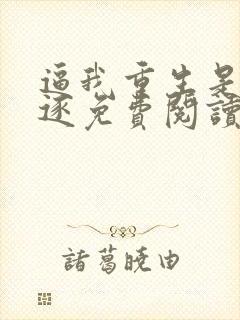 逼我重生是
逐免費閱讀
諸葛曉由